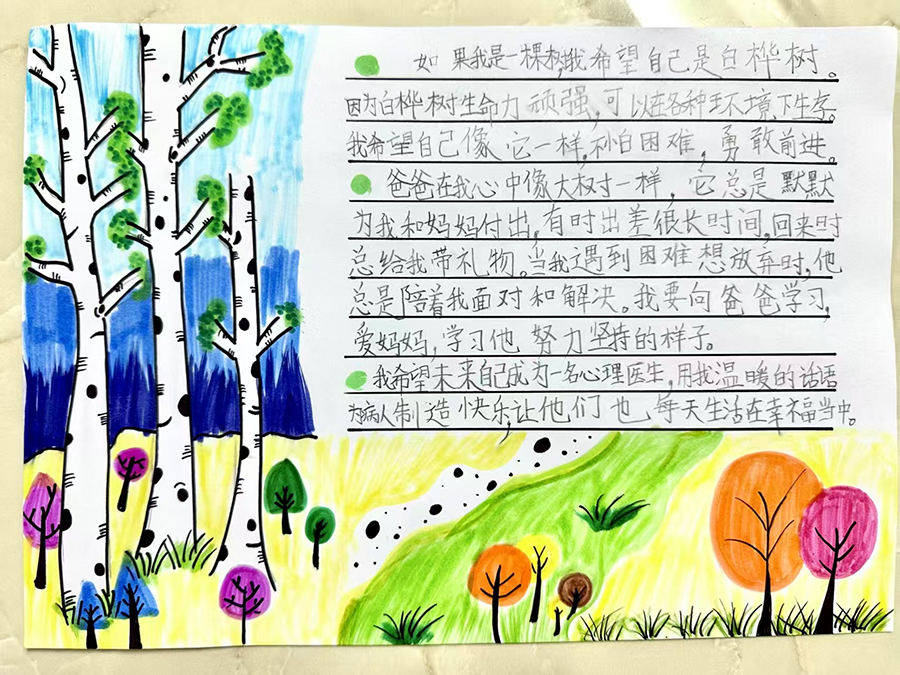 如果我是一棵树,我希望自己是白桦树。
因为白桦树生命力顽强,可以在各种环境下生存。
我希望自己像它一样,不怕困难,勇敢前进。
爸爸在我心中像大树一样,它总是默默
为我和妈妈付出,有时出差很长时间,回来时
总给我带礼物。当我遇到困难想放弃时,他
总是陪着我面对和解决。我要向爸爸学习,
爱妈妈,学习他努力坚持的样子。
我希望未来自己成为一名心理医生,用我温暖的话语
为病人制造快乐,让他们也每天生活在幸福当中。